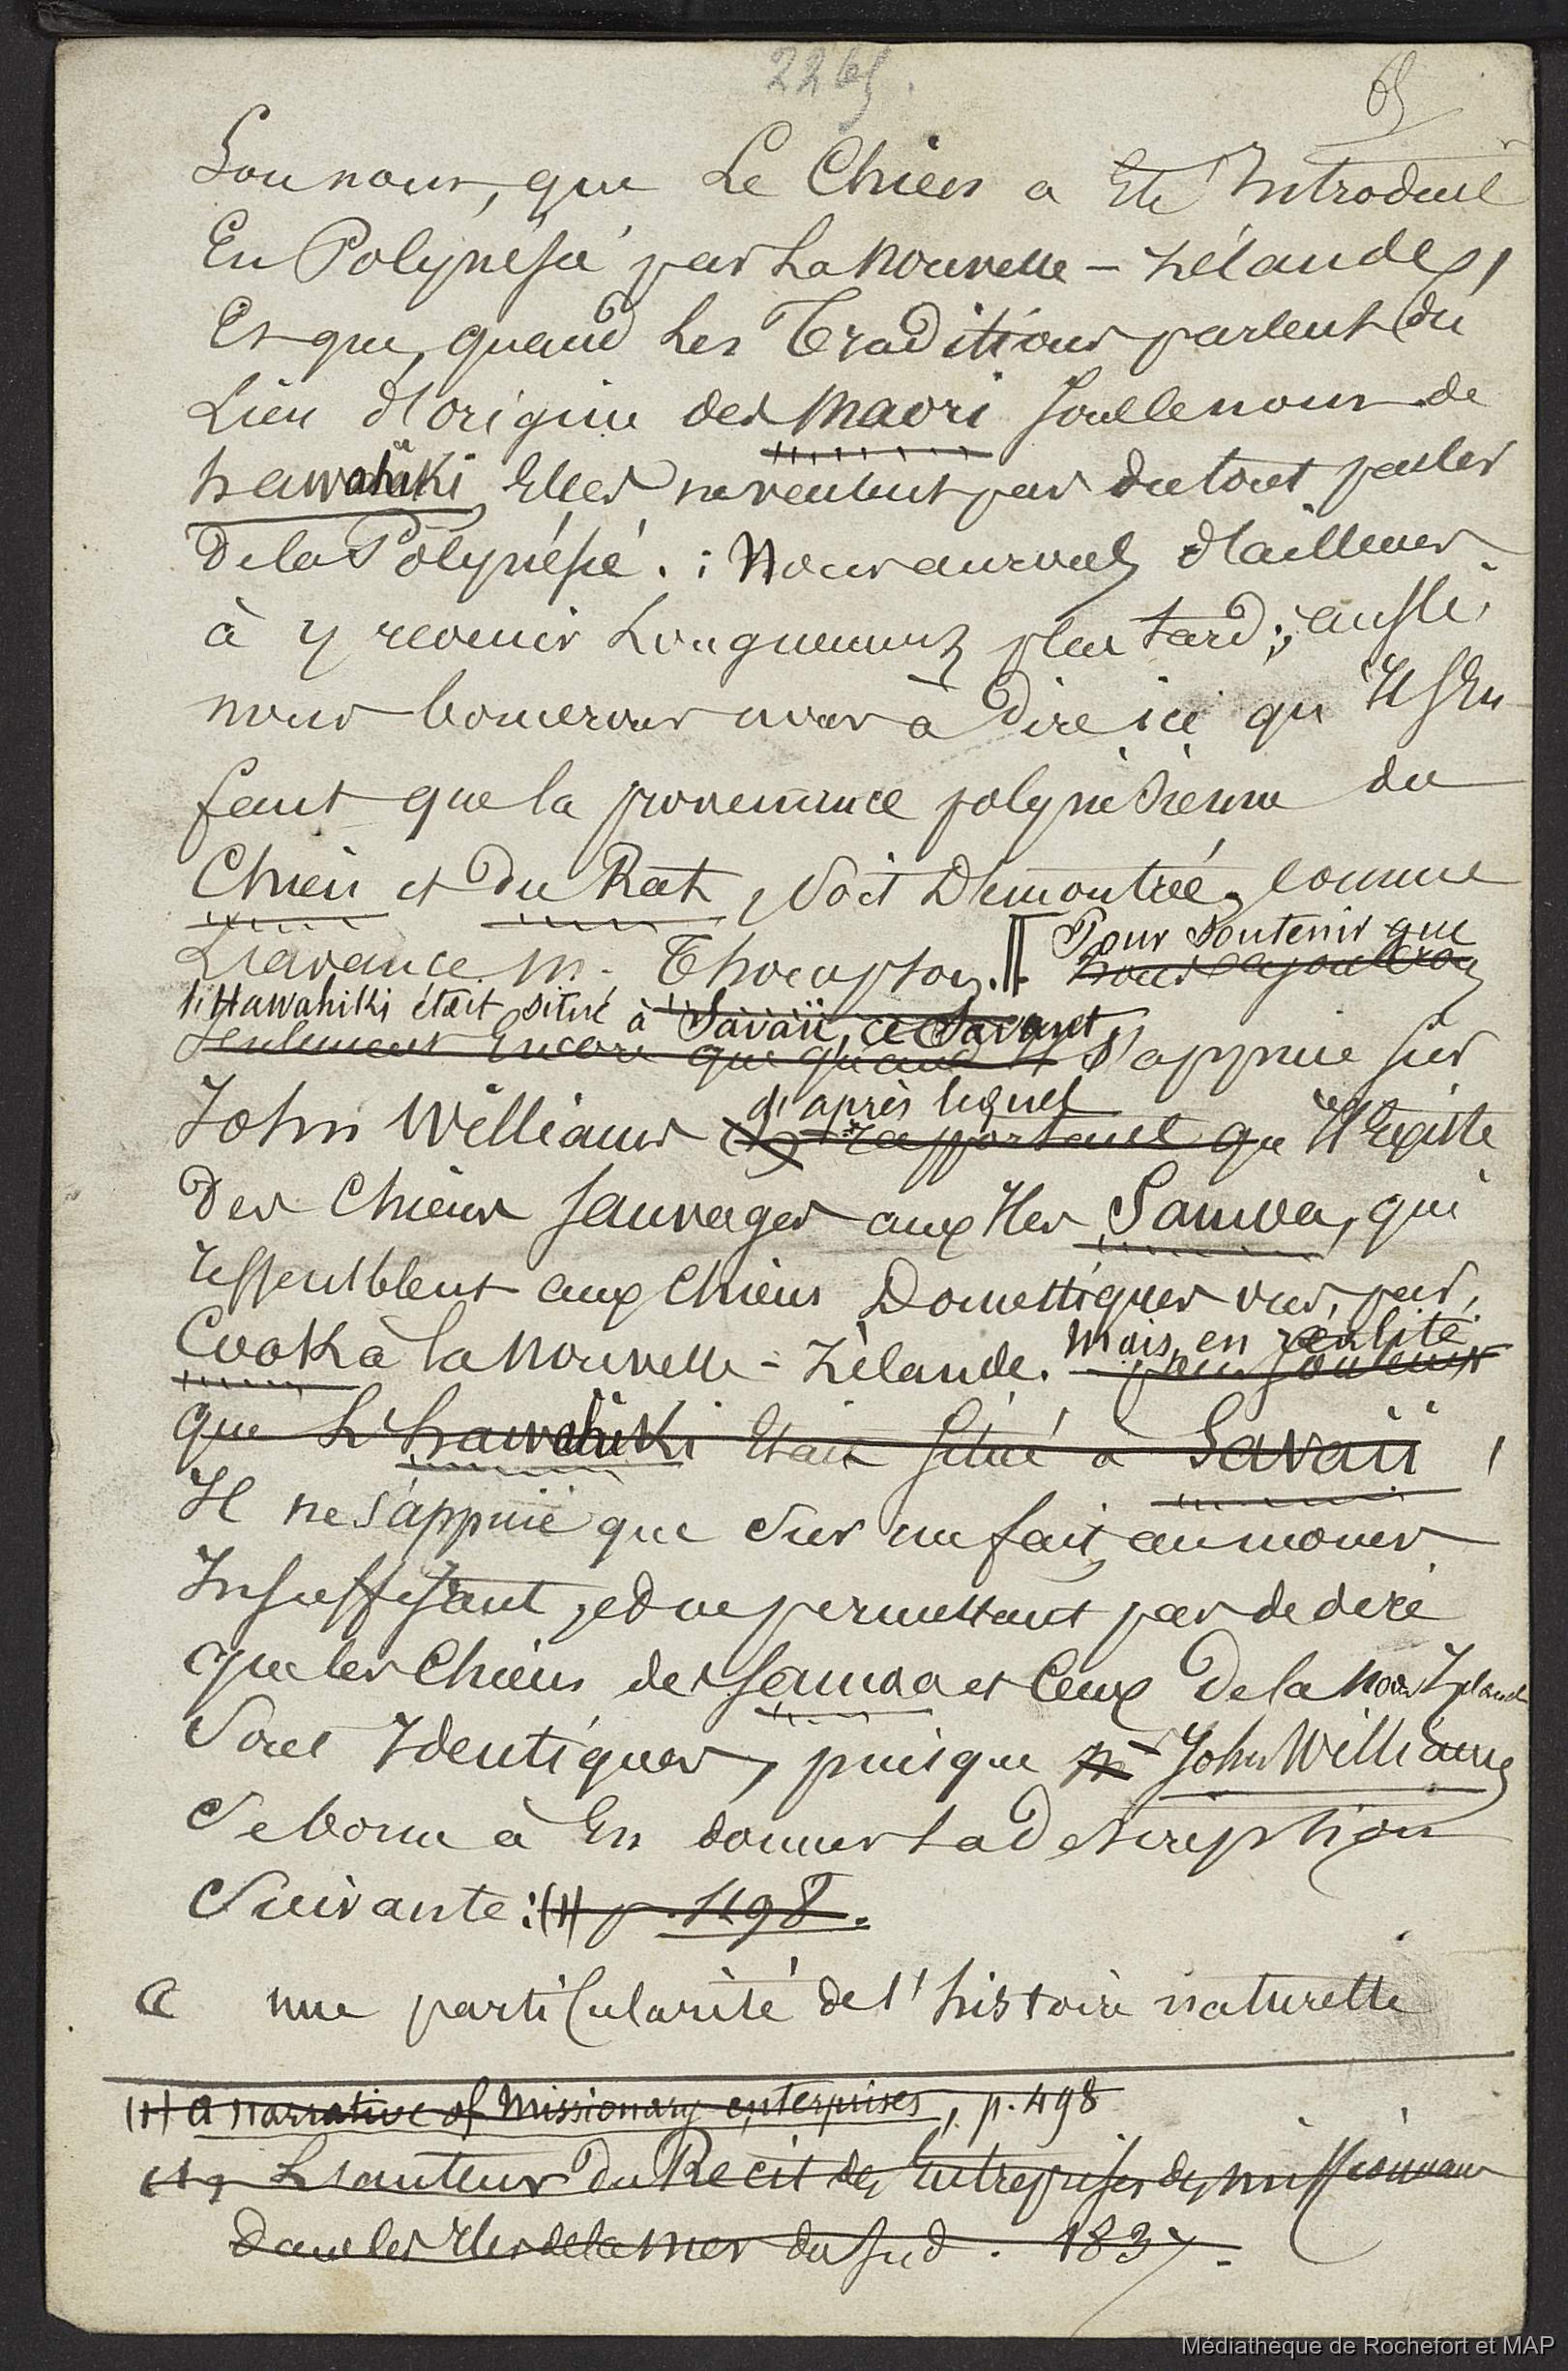 2265.
65
Sou nous, que Le Chien a Eté Introduit
En Polynésie par La Nouvelle - Zélande,
Et que, quand Les Traditions parlent du
Lieu d'origine des Maori sous le nom de
hawahiki Elles ne veulent pas du tout parler
De la Polynésie. : Nous aurons d'ailleurs
à y revenir Longuement plus tard ; aussi
nous bornerons nous à Dire ici qu'Il s'En
faut que la provenance polynésienne du
Chien et du Rat, soit Démontrée, comme
L'avance M. Thompson. Pour soutenir que
Nous ajouterons
l'Hawahiki était situé à Savaii, ce Savant
Seulement Encore que quand Il s'appuie sur
d'après lequel
John Williams rapportant qu Il Existe
Des Chiens sauvages aux Iles Samoa, qui
ressemblent aux Chiens Domestiques vus, par,
Mais, en réalité
Cook à la Nouvelle - Zélande. pour soutenir
que L'hawahiki Etait situé à Savaii,
Il ne s'appuie que sur un fait, au moins
Insuffisant, et ne permettant pas de dire
que les Chiens des Samoa et Ceux De la Nou. Zélande
Sont Identiques, puisque Mr John Williams
Se borne à En donner La Description
Suivante : (1) p. 498.
a une particularité de l'histoire naturelle
(1) a narrative of Missionary enterprises, p. 498
(1) L'auteur Du Récit des Entreprises des missionnaires
Dans les Iles de la Mer du Sud. 1837.